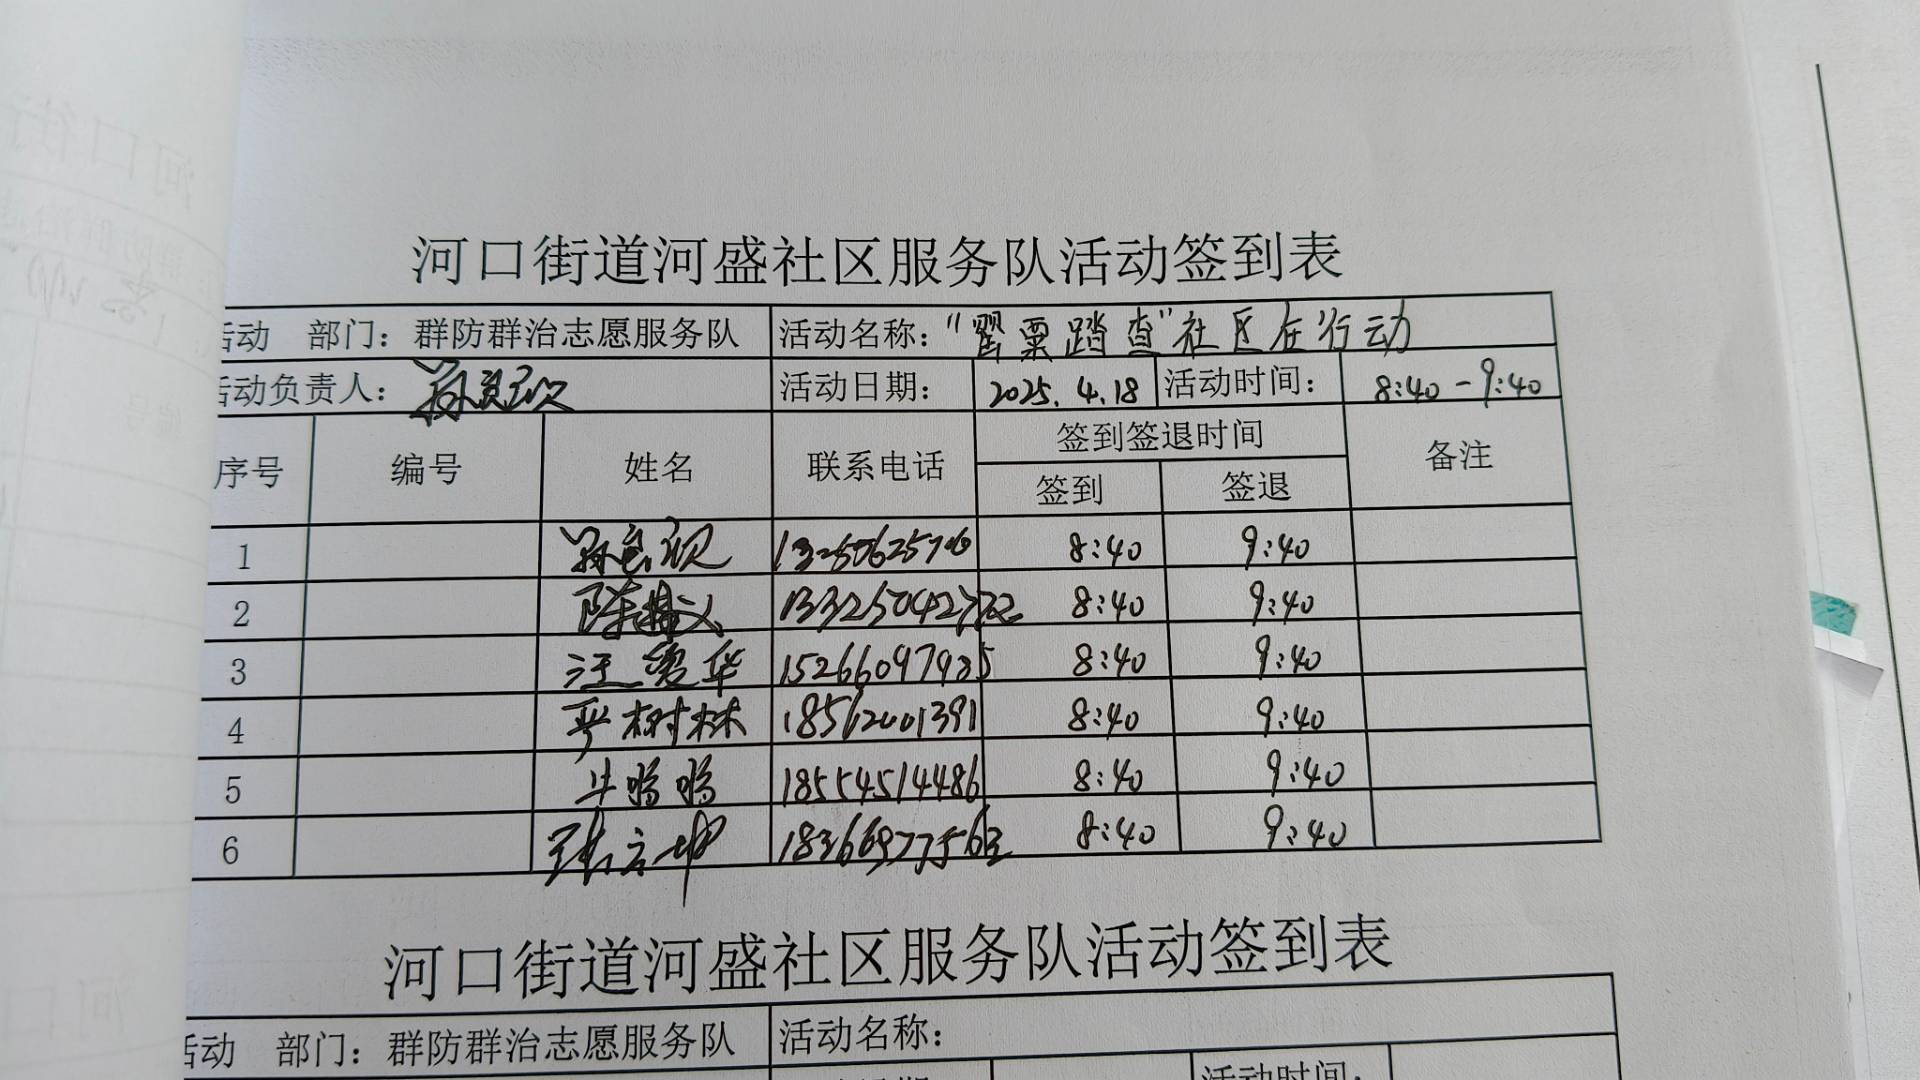 河口街道河盛社区服务队活动签到表
活动 部门：群防群治志愿服务队 活动名称：“罂粟踏查”社区在行动
活动负责人： 活动日期： 2025.4.18 活动时间： 8:40-9:40
序号 编号 姓名 联系电话 签到签退时间 备注
签到 签退
1 8:40 9:40
2 8:40 9:40
3 汪爱华 15266097985 8:40 9:40
4 严树林 18562001391 8:40 9:40
5 牛鸽鸽 18554514486 8:40 9:40
6 张立坤 18366977563 8:40 9:40
河口街道河盛社区服务队活动签到表
活动 部门：群防群治志愿服务队 活动名称：
活动时间：